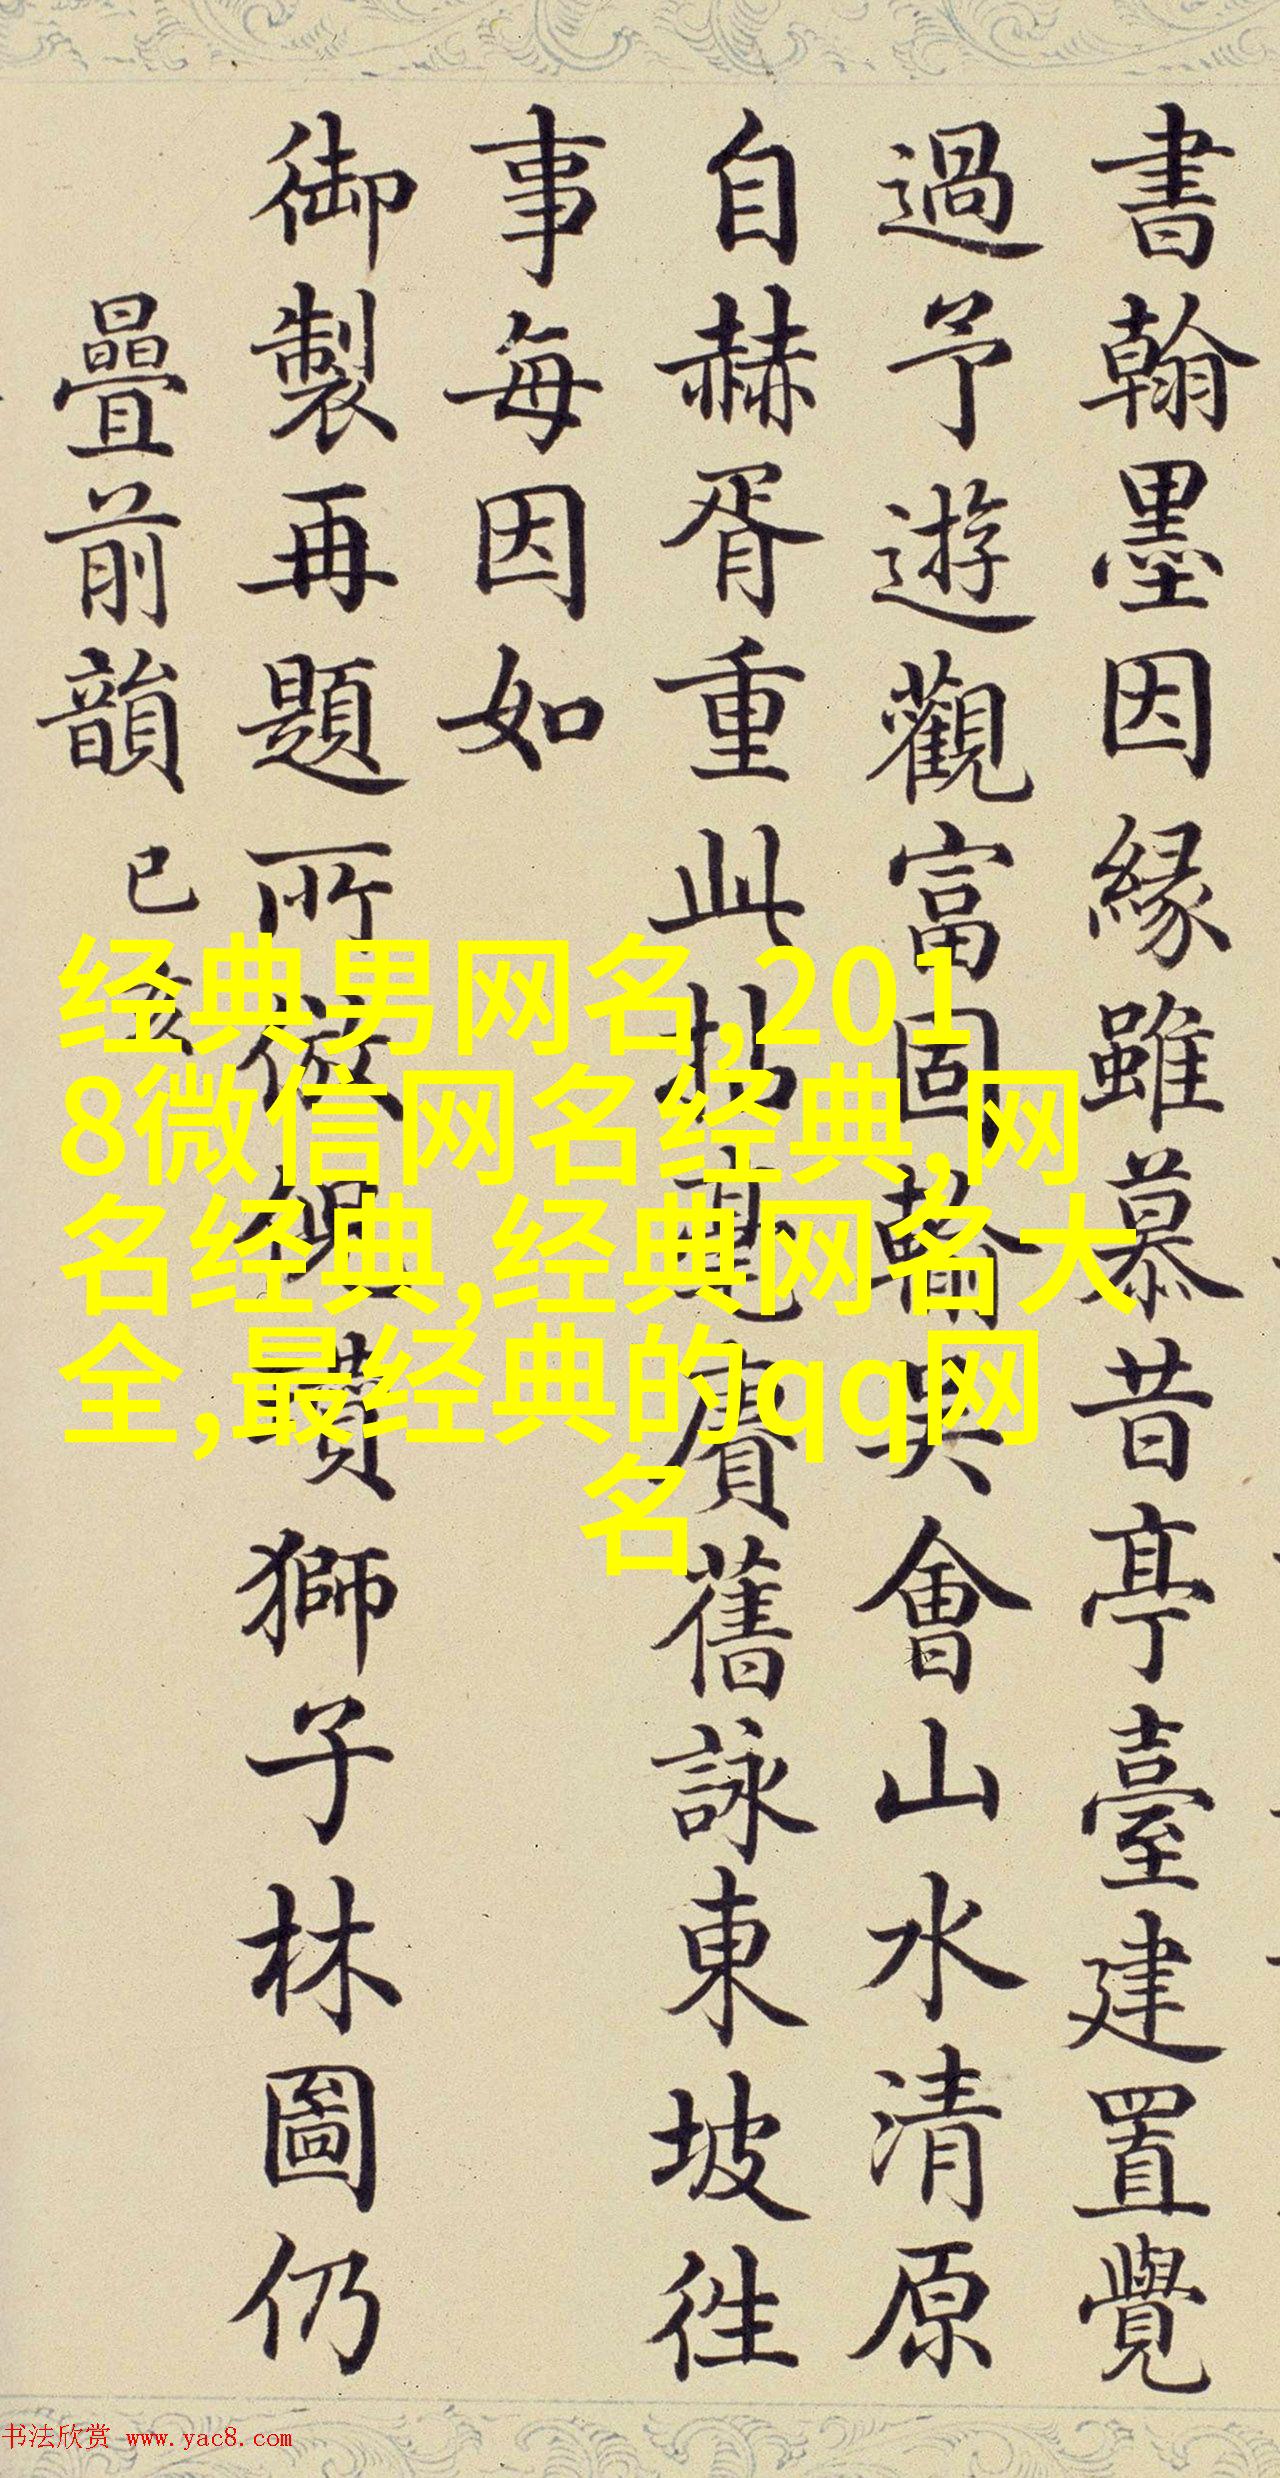 書翰墨因緣雖慕昔亭臺建置覺
過予遊觀富固輸吳會山水清原
自赫胥重此拈毫賡舊詠東坡徃
事每因如
御製再題所倣倪瓚獅子林圖仍
疊前韻 已亥
经典男网名,201
8微信网名经典,网
名经典,经典网名大
全,最经典的qq网
名
书法欣赏 www.yac8.com